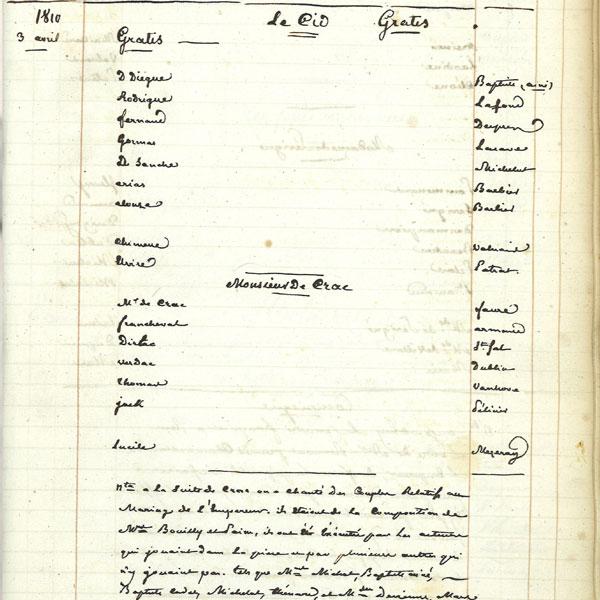 1810 Le Cid Gratis
3 avril Gratis
D Diegue Baptiste (ainé)
Rodrigue Lafond
fernand Desprez
Gormas Lacave
D Sanche Michelot
arias Barbier
alonze Barbier
chimene volnais
Elvire Patrat
Monsieur De Crac
Mr de Crac fauré
francheval armand
Dirlac St fal
verdac Dublin
thomas vanhove
jack félicier
Lucile Mezeray
Nta a la Suite de Crac on a Chanté des Couplets Relatifs au
Mariage de L'Empereur. ils étoient de la Composition de
Mrs Bouilly et Pain, ils ont été Executés par les acteurs
qui jouaient dans la piece et par plusieurs autres qui
n'y jouaient pas. tels que Mrs Michot, Baptiste ainé,
Baptiste cadet, Michelot, thénard, et Mes Devienne, Mars